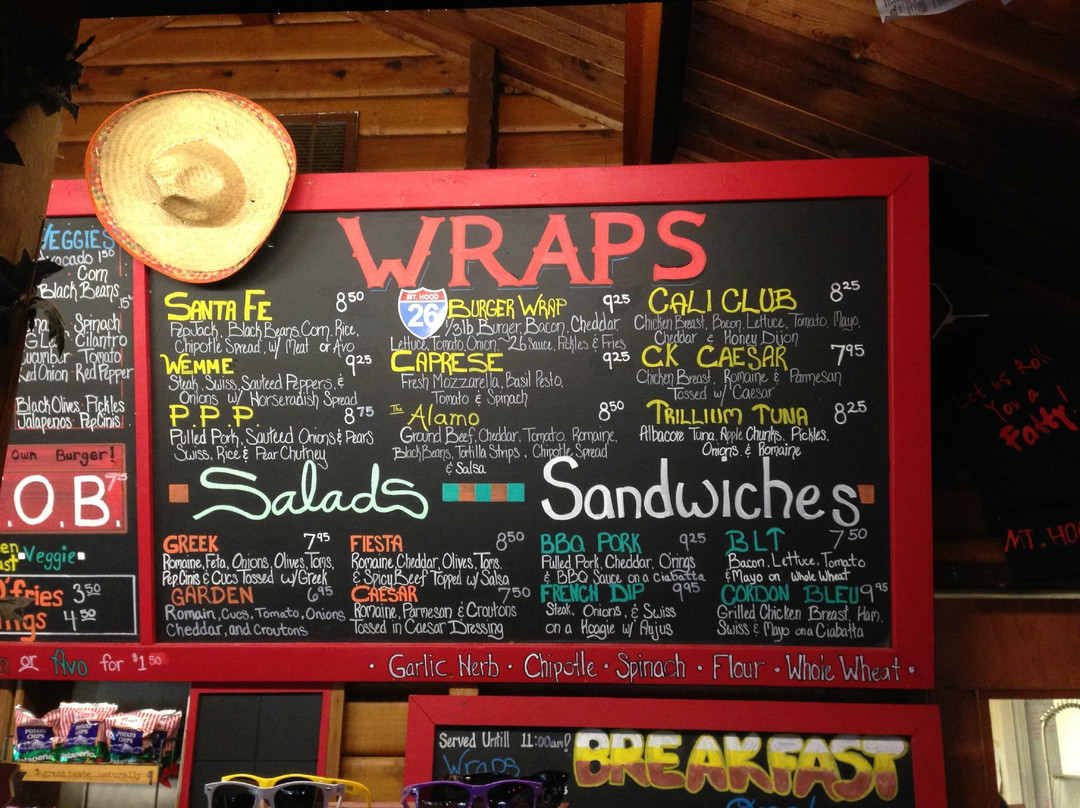 VEGGIES
Avocado 1.50
Corn
Black Beans
.15
Spinach
Cilantro
Cucumber Tomato
Red Onion · Red Pepper
Black Olives · Pickles
Jalapenos PepCinis
Own Burger!
.O.B. 7.25
Veggie
fries 3.50
ngs 4.50
or Avo for $1.50
WRAPS
SANTA FE 8.50
PepJack, Black Beans, Corn, Rice,
Chipotle Spread, w/ Meat or Avo
WEMME 9.25
Steak, Swiss, Sauteed Peppers, &
Onions w/ Horseradish Spread
P.P.P. 8.75
Pulled Pork, Sauteed Onions & Pears
Swiss, Rice & Pear Chutney
MT. HOOD
26
BURGER WRAP 9.25
1/3lb Burger, Bacon, Cheddar
Lettuce, Tomato, Onion, ~26 Sauce, Pickles & Fries
CAPRESE 9.25
Fresh Mozzarella, Basil Pesto,
Tomato & Spinach
The Alamo 8.50
Ground Beef, Cheddar, Tomato, Romaine,
Black Beans, Tortilla Strips, Chipotle Spread
& Salsa
CALI CLUB 8.25
Chicken Breast, Bacon, Lettuce, Tomato, Mayo,
Cheddar & Honey Dijon
CK CAESAR 7.95
Chicken Breast, Romaine & Parmesan
Tossed w/ Caesar
TRILLIUM TUNA 8.25
Albacore Tuna, Apple Chunks, Pickles,
Onions & Romaine
Salads
GREEK 7.95
Romaine, Feta, Onions, Olives, Toms,
PepCinis & Cucs Tossed w/Greek
GARDEN 6.95
Romain, Cucs, Tomato, Onions
Cheddar, and Croutons
FIESTA 8.50
Romaine, Cheddar, Olives, Toms,
& Spicy Beef Topped w/ Salsa
CAESAR 7.50
Romaine, Parmesan & Croutons
Tossed in Caesar Dressing
Sandwiches
BBQ PORK 9.25
Pulled Pork, Cheddar, O'rings
& BBQ Sauce on a ciabatta
FRENCH DIP 9.95
Steak, Onions, & Swiss
on a Hoagie w/ Aujus
BLT 7.50
Bacon, Lettuce, Tomato
& Mayo on whole Wheat
CORDON BLEU 9.95
Grilled Chicken Breast, Ham,
Swiss & Mayo on a Ciabatta
· Garlic Herb · Chipotle · Spinach · Flour · Whole Wheat ·
Let us Roll
You a
Fatty!
MT. HO
POTATO CHIPS
POTATO CHIPS
POTATO CHIPS
Jalapeño
great taste...naturally
Served Untill 11:00am!
BREAKFAST
Wraps